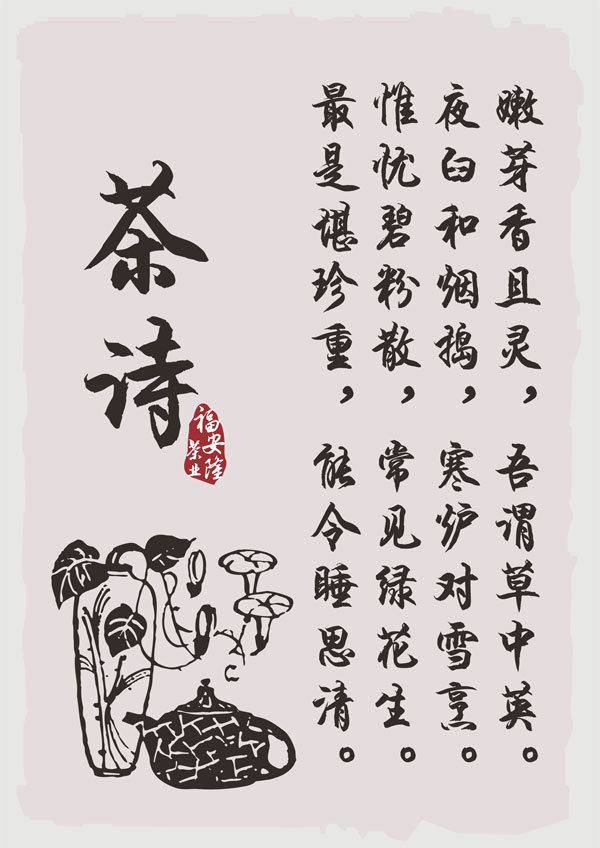 嫩芽香且灵，吾谓草中英。
夜臼和烟捣，寒炉对雪烹。
惟忧碧粉散，常见绿花生。
最是堪珍重，能令睡思清。
茶诗
福安隆
茶业